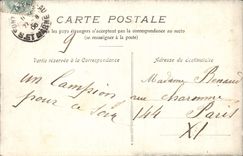 CARTE POSTALE
les pays étrangers n'acceptent pas la correspondance au recto
(se renseigner à la poste)
Partie réservée à la Correspondance
Adresse du destinataire
9
un Lampion
pour ce soir
Madame Renaud
rue Charonne
144
Paris
XI